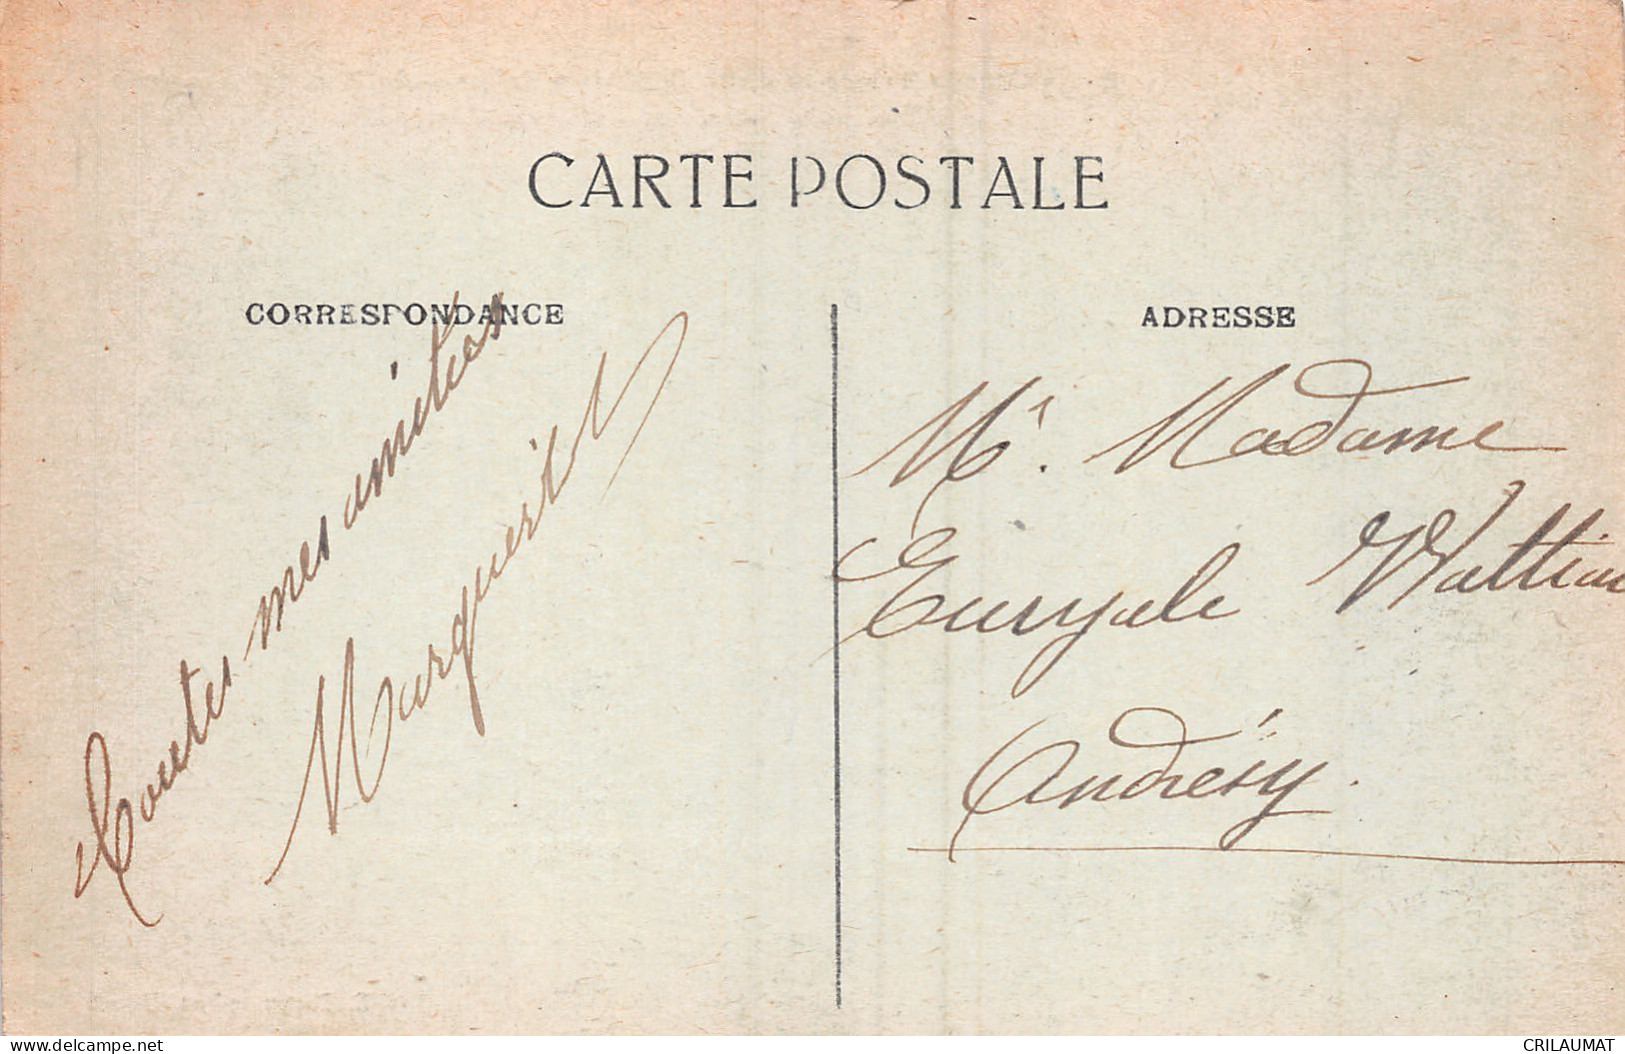 CARTE POSTALE
CORRESPONDANCE
Toutes mes amitiés
Marguerite
ADRESSE
Mr. Madame
Euryale Wattiau
Andrésy.
delcampe.net
CRILAUMAT